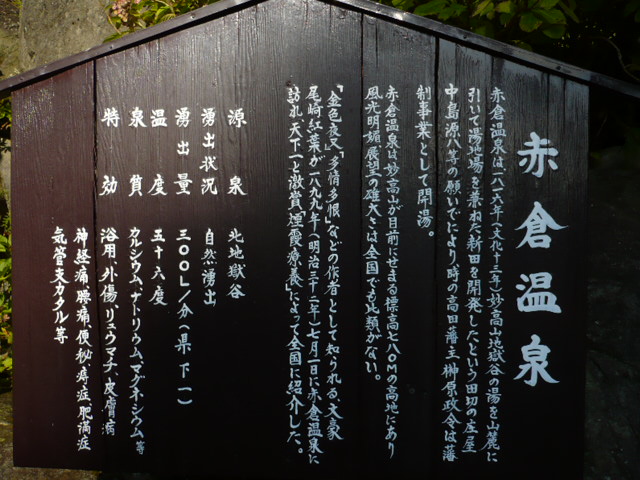 赤倉温泉
赤倉温泉は一八一六年(文化十三年)妙高山地獄谷の湯を山麓に
引いて湯治場を兼ねた新田を開発したという田切の庄屋
中島源八等の願いでにより時の高田藩主榊原政令は藩
制事業として開湯。
赤倉温泉は妙高山が目前にせまる標高七八〇Mの高地にあり
風光明媚展望の雄大さは全国でも比類がない。
「金色夜叉」「多情多恨」などの作者として知られる、文豪
尾崎紅葉が一八九九年(明治三十二年)七月一日に赤倉温泉に
訪れ「天下一」と激賞「煙霞療養」によって全国に紹介した。
源泉 北地獄谷
湧出状況 自然湧出
湧出量 三〇〇〇L/分(県下一)
温度 五十六度
泉質 カルシウム、ナトリウム、マグネシウム、等
特効 浴用、外傷、リュウマチ、皮膚病
神経痛、腰痛、便秘、痔症、肥満症
気管支カタル等